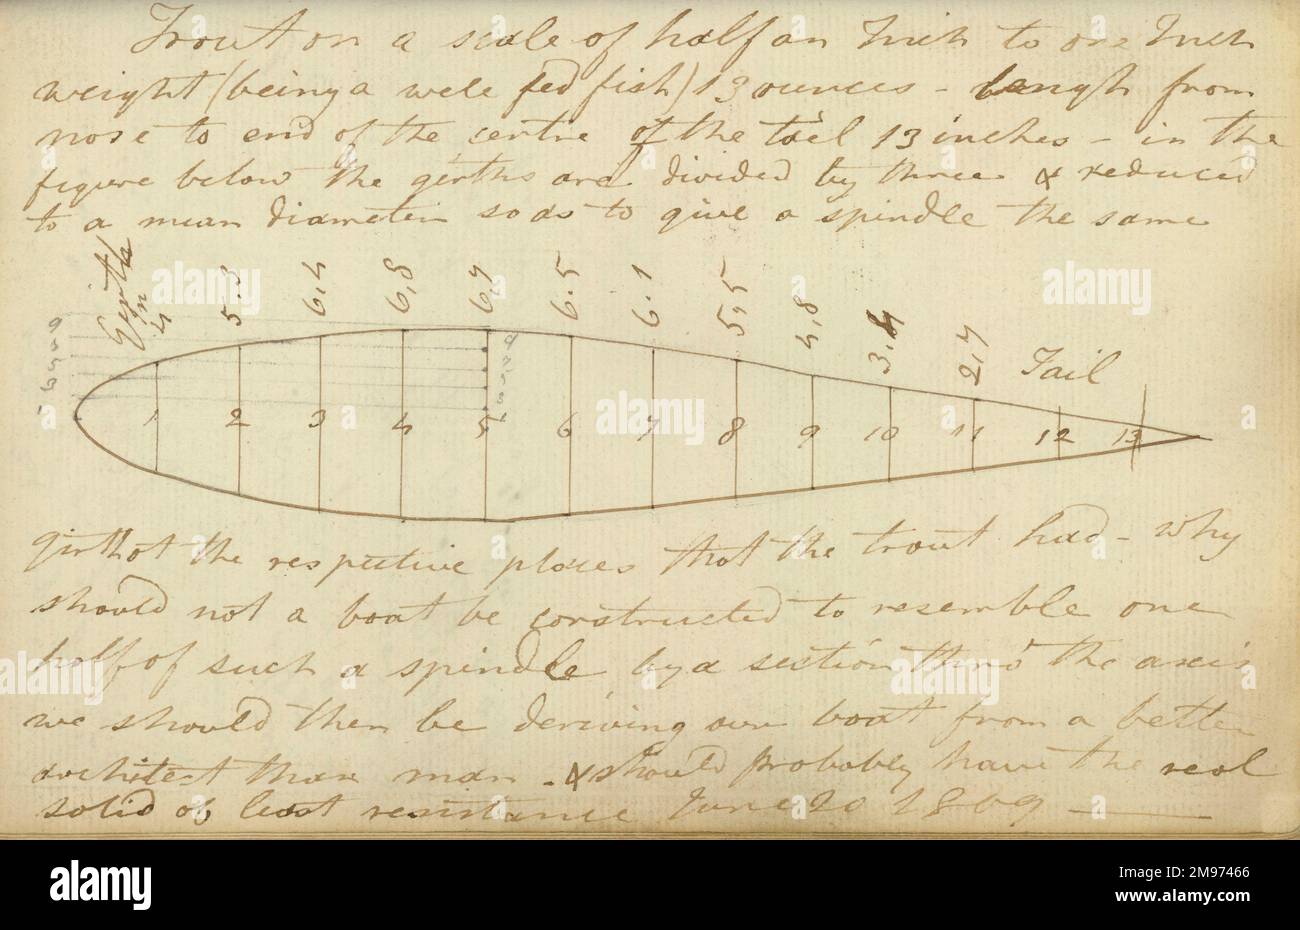 Trout on a scale of half an Inch to one Inch
weight (being a wele fed fish) 13 ounces - length from
nose to end of the centre of the tail 13 inches - in the
figure below the girths are divided by three & reduced
to a mean diameter so as to give a spindle the same
Girth in
4 5.3 6,4 6,8 6,9 6.5 6.1 5,5 4,8 3.4 2,7 Tail
1 2 3 4 5 6 7 8 9 10 11 12 13
girth at the respective places that the trout had - why
should not a boat be constructed to resemble one
half of such a spindle by a section thro' the axis
we should then be deriving our boat from a better
architect than man - & should probably have the real
solid of least resistance June 20 1869
alamy
a
alamy
Image ID: 2M97466
www.alamy.com